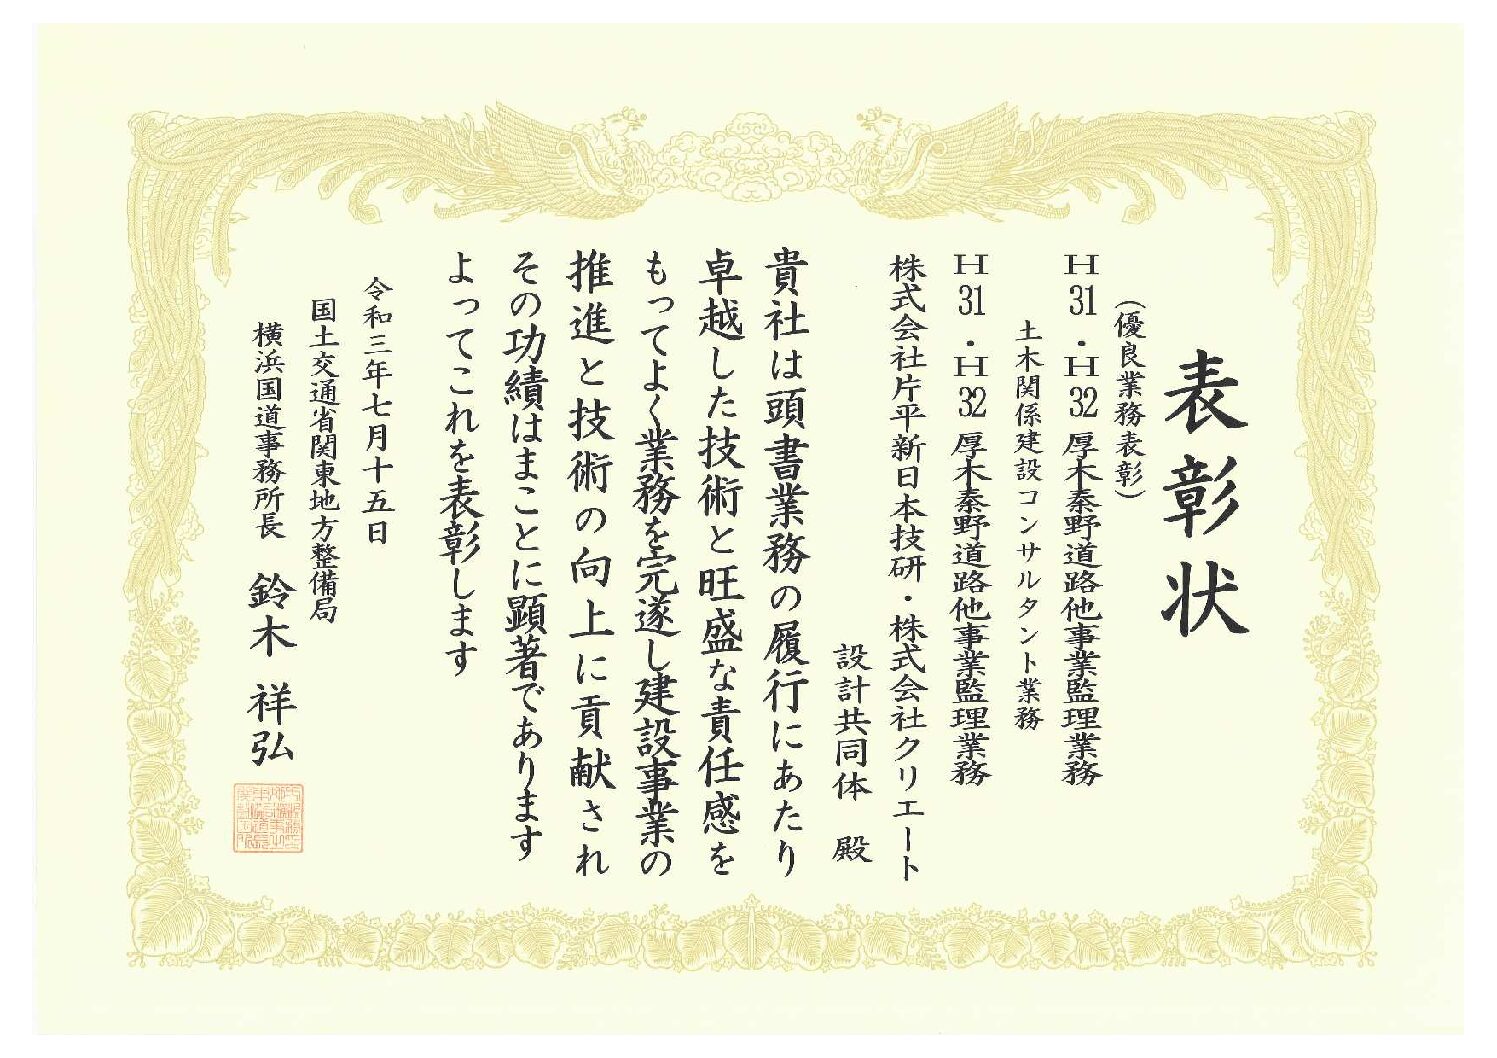 表彰状
（優良業務表彰）
H31・H32厚木秦野道路他事業監理業務
土木関係建設コンサルタント業務
H31・H32厚木秦野道路他事業監理業務
株式会社片平新日本技研・株式会社クリエート
設計共同体 殿
貴社は頭書業務の履行にあたり
卓越した技術と旺盛な責任感を
もってよく業務を完遂し建設事業の
推進と技術の向上に貢献され
その功績はまことに顕著であります
よってこれを表彰します
令和三年七月十五日
国土交通省関東地方整備局
横浜国道事務所長 鈴木祥弘